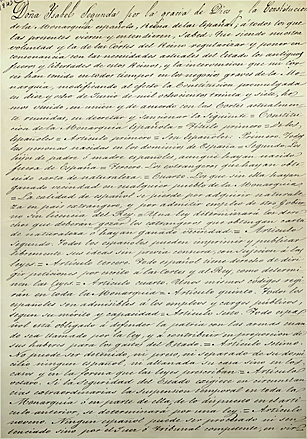 Doña Isabel Segunda por la gracia de Dios y la Constitucion
de la Monarquía española, Reina de las Españas, á todos los que
las presentes vieren y entendieren, sabed: Que siendo nuestra
voluntad y la de las Cortes del Reino regularizar y poner en
consonancia con las necesidades actuales del Estado los antiguos
fueros y libertades de estos Reinos, y la intervencion que sus Cor-
tes han tenido en todos tiempos en los negocios graves de la Mo-
narquía, modificando al efecto la Constitucion promulgada
en diez y ocho de Junio de mil ochocientos treinta y siete, he-
mos venido, en union y de acuerdo con las Cortes actualmen-
te reunidas, en decretar y sancionar la siguiente = Constitu-
cion de la Monarquía Española = Título primero = De los
Españoles = Artículo primero = Son Españoles: Primero. Todas
las personas nacidas en los dominios de España = Segundo. Los
hijos de padre ó madre españoles, aunque hayan nacido
fuera de España = Tercero. Los extrangeros que hayan obte-
nido carta de naturaleza = Cuarto. Los que sin ella hayan
ganado vecindad en cualquier pueblo de la Monarquía =
= La calidad de español se pierde por adquirir naturaleza
en pais extrangero, y por admitir empleo de otro Gobier-
no sin licencia del Rey = Una ley determinará los dere-
chos que deberán gozar los extrangeros que obtengan carta
de naturaleza ó hayan ganado vecindad = Artículo
Segundo. Todos los españoles pueden imprimir y publicar
libremente sus ideas sin previa censura, con sujecion á las
leyes = Artículo tercero. Todo español tiene derecho de diri-
gir peticiones por escrito á las Cortes y al Rey, como determi-
nen las leyes = Artículo cuarto. Unos mismos códigos regi-
rán en toda la Monarquía = Artículo quinto. Todos los
españoles son admisibles á los empleos y cargos públicos,
segun su mérito y capacidad = Artículo sesto. Todo espa-
ñol está obligado á defender la patria con las armas cuan-
do sea llamado por la ley, y á contribuir en proporcion de
sus haberes para los gastos del Estado = Artículo sétimo.
No puede ser detenido, ni preso, ni separado de su domi-
cilio ningun español, ni allanada su casa sino en los
casos y en la forma que las leyes prescriban = Artículo
octavo. Si la seguridad del Estado exigiere en circunstan-
cias extraordinarias la suspension temporal en toda la
Monarquía, ó en parte de ella, de lo dispuesto en el artí-
culo anterior, se determinará por una ley = Artículo
noveno. Ningun español puede ser procesado ni sen-
tenciado sino por el Juez ó Tribunal competente, en vir-